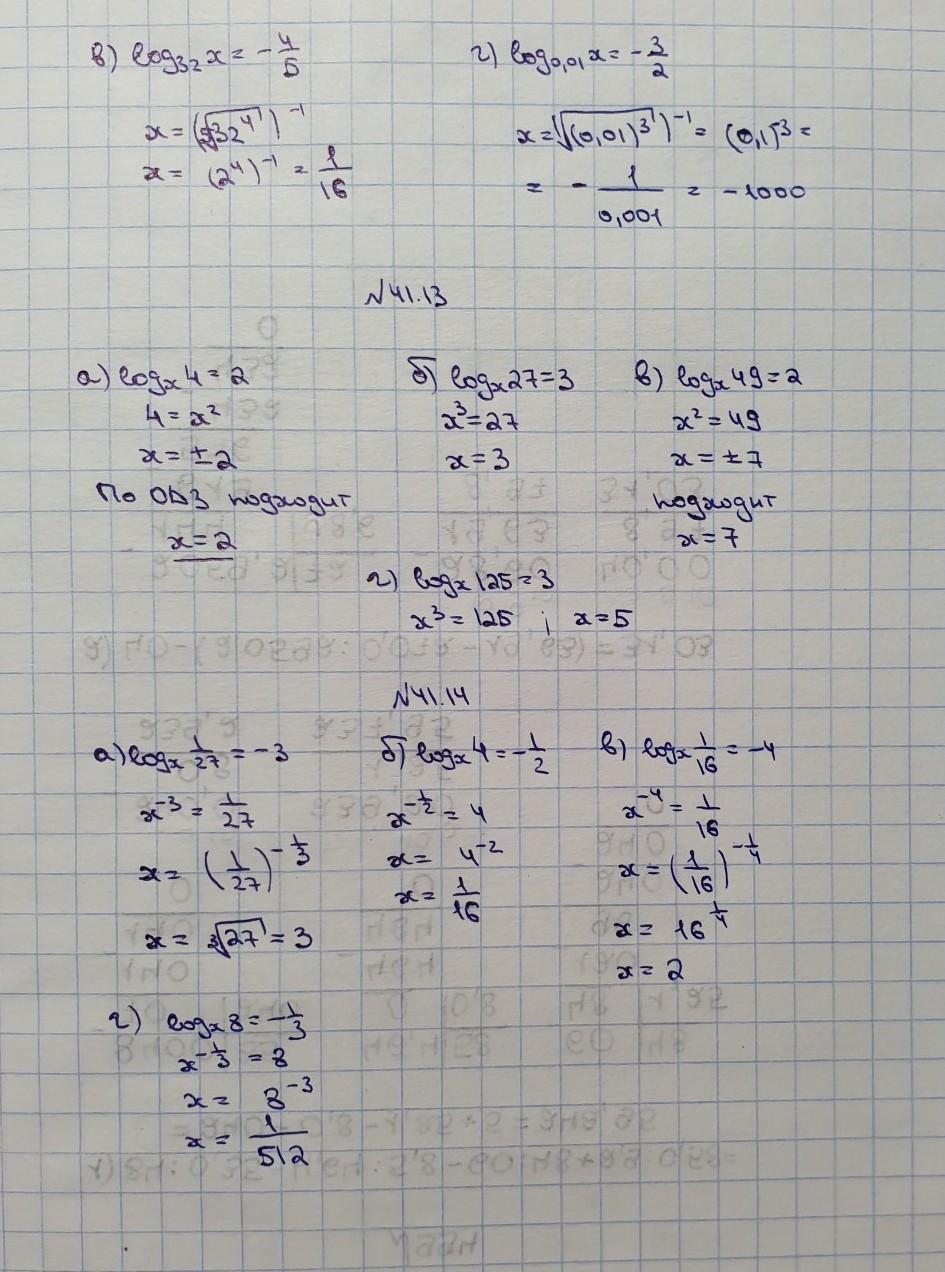 в) log₃₂x = -4/5
x = (⁵√32⁴)⁻¹
x = (2⁴)⁻¹ = 1/16
г) log₀,₀₁x = -3/2
x = (√(0,01)³)⁻¹ = (0,1)⁻³ =
= - 1/0,001 = -1000
№41.13
а) logₓ4 = 2
4 = x²
x = ±2
По ОДЗ подходит
x = 2
б) logₓ27 = 3
x³ = 27
x = 3
в) logₓ49 = 2
x² = 49
x = ±7
подходит
x = 7
г) logₓ125 = 3
x³ = 125 ; x = 5
№41.14
а) logₓ 1/27 = -3
x⁻³ = 1/27
x = (1/27)^(-1/3)
x = ³√27 = 3
б) logₓ4 = -1/2
x^(-1/2) = 4
x = 4⁻²
x = 1/16
в) logₓ 1/16 = -4
x⁻⁴ = 1/16
x = (1/16)^(-1/4)
x = 16^(1/4)
x = 2
г) logₓ8 = -1/3
x^(-1/3) = 8
x = 8⁻³
x = 1/512